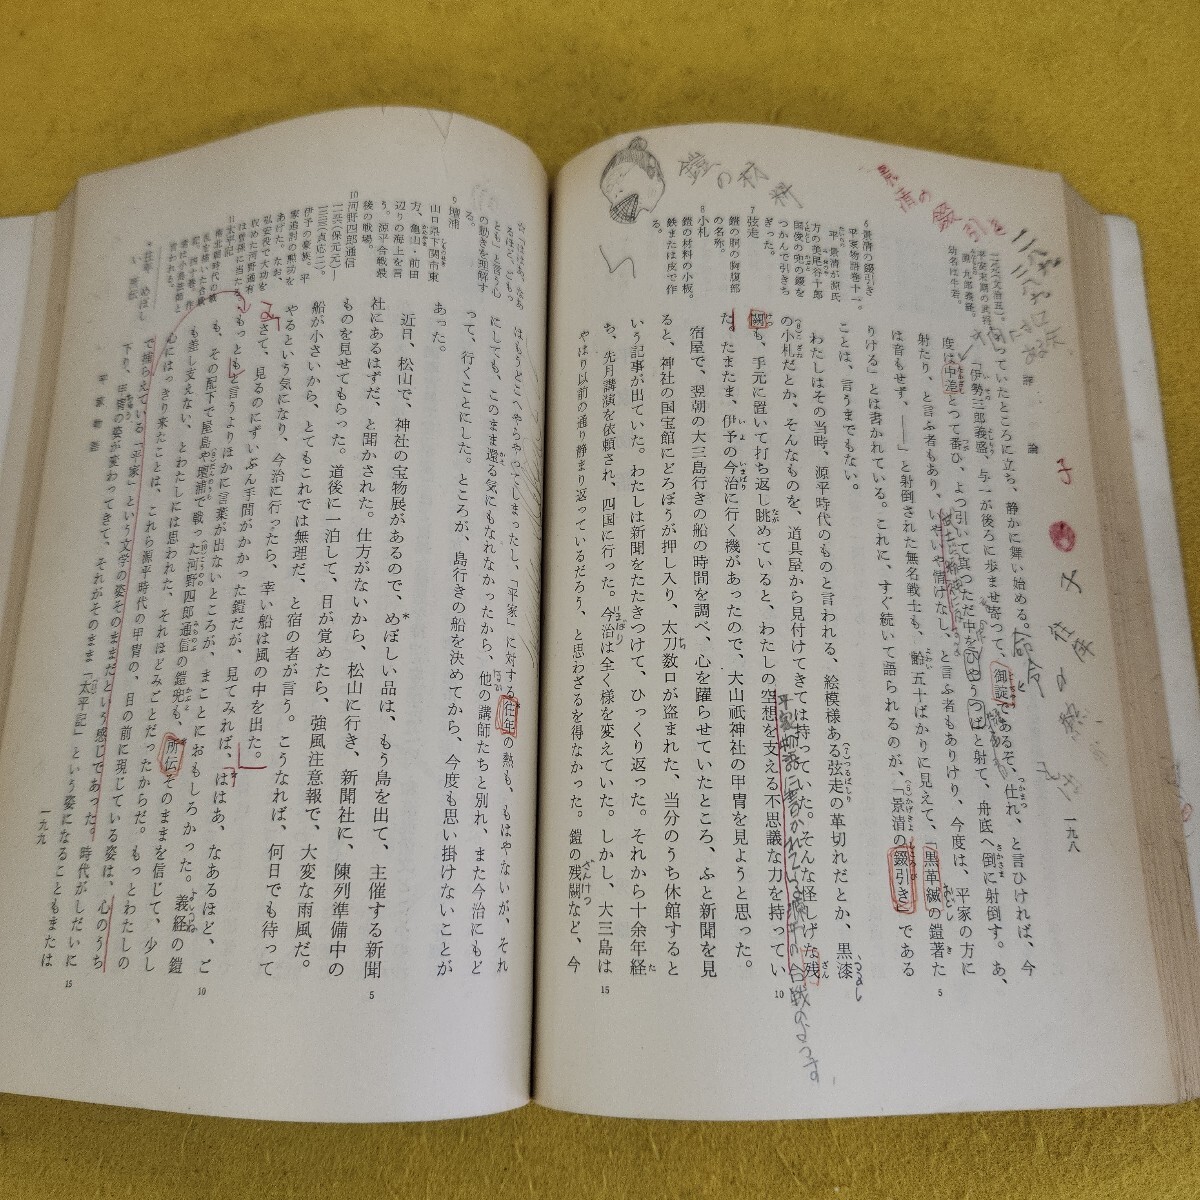 評論
一九八
っていたところに立ち、静かに舞い始める。
「伊勢三郎義盛、与一が後ろに歩ませ寄つて、御諚であるぞ、仕れ、と言ひければ、今
度は中差とつて番ひ、よつ引いて真つただ中をひやうつばと射て、舟底へ倒に射倒す。あ、
射たり、と言ふ者もあり、いやいや情けなし、と言ふ者もありけり、今度は、平家の方に
は音もせず、――」と射倒された無名戦士も、齢五十ばかりに見えて、「黒革縅の鎧著た
りける」とは書かれている。これに、すぐ続いて語られるのが、「景清の錣引き」である
ことは、言うまでもない。
わたしはその当時、源平時代のものと言われる、絵模様ある弦走の革切れだとか、黒漆
の小札だとか、そんなものを、道具屋から見付けてきては持っていた。そんな怪しげな残
闕も、手元に置いて打ち返し眺めていると、わたしの空想を支える不思議な力を持ってい
た。たまたま、伊予の今治に行く機があったので、大山祇神社の甲冑を見ようと思った。
宿屋で、翌朝の大三島行きの船の時間を調べ、心を躍らせていたところ、ふと新聞を見
ると、神社の国宝館にどろぼうが押し入り、太刀数口が盗まれた、当分のうち休館すると
いう記事が出ていた。わたしは新聞をたたきつけて、ひっくり返った。それから十余年経
ち、先月講演を依頼され、四国に行った。今治は全く様を変えていた。しかし、大三島は
やはり以前の通り静まり返っているだろう、と思わざるを得なかった。鎧の残闕など、今
6 景清の錣引き
平家物語巻十一。
平景清が源氏
方の美尾谷十郎
国俊の兜の錣を
つかんで引きち
ぎった。
7 弦走
鎧の胴の胸腹部
の名称。
8 小札
鎧の材料の小板。
鉄または皮で作
る。
鎧の材料
景清の錣引き
命令
平家物語に書かれている源平の合戦のようす
はもうどこへやらやってしまったし、「平家」に対する往年の熱も、もはやないが、それ
にしても、このまま還る気にもなれなかったから、他の講師たちと別れ、また今治にもど
って、行くことにした。ところが、島行きの船を決めてから、今度も思い掛けないことが
あった。
近日、松山で、神社の宝物展があるので、めぼしい品は、もう島を出て、主催する新聞
社にあるはずだ、と聞かされた。仕方がないから、松山に行き、新聞社に、陳列準備中の
ものを見せてもらった。道後に一泊して、目が覚めたら、強風注意報で、大変な雨風だ。
船が小さいから、とてもこれでは無理だ、と宿の者が言う。こうなれば、何日でも待って
やるという気になり、今治に行ったら、幸い船は風の中を出た。
さて、見るのにずいぶん手間がかかった鎧だが、見てみれば、ははあ、なあるほど、ご
もっともと言うよりほかに言葉が出ないところが、まことにおもしろかった。義経の鎧
も、その配下で屋島や壇浦で戦った河野四郎通信の鎧兜も、所伝そのままを信じて、少し
も差し支えない、とわたしには思われた、それほどみごとだったからだ。もっとわたしの
心にはっきり来たことは、これら源平時代の甲冑の、目の前に現じている姿は、心のうち
で捕らえている「平家」という文学の姿そのままだという感じであった。時代がしだいに
下り、甲冑の姿が変わってきて、それがそのまま「太平記」という姿になることもまたは
9 壇浦
山口県下関市東
方、亀山・前田
辺りの海上を言
う。源平合戦最
後の戦場。
10 河野四郎通信
伊予の豪族。平
家追討の勲功を
あげた。なお、
弘安役で大功を
収めた河野通有
は曽孫に当たる。
11 太平記
平家物語
一九九